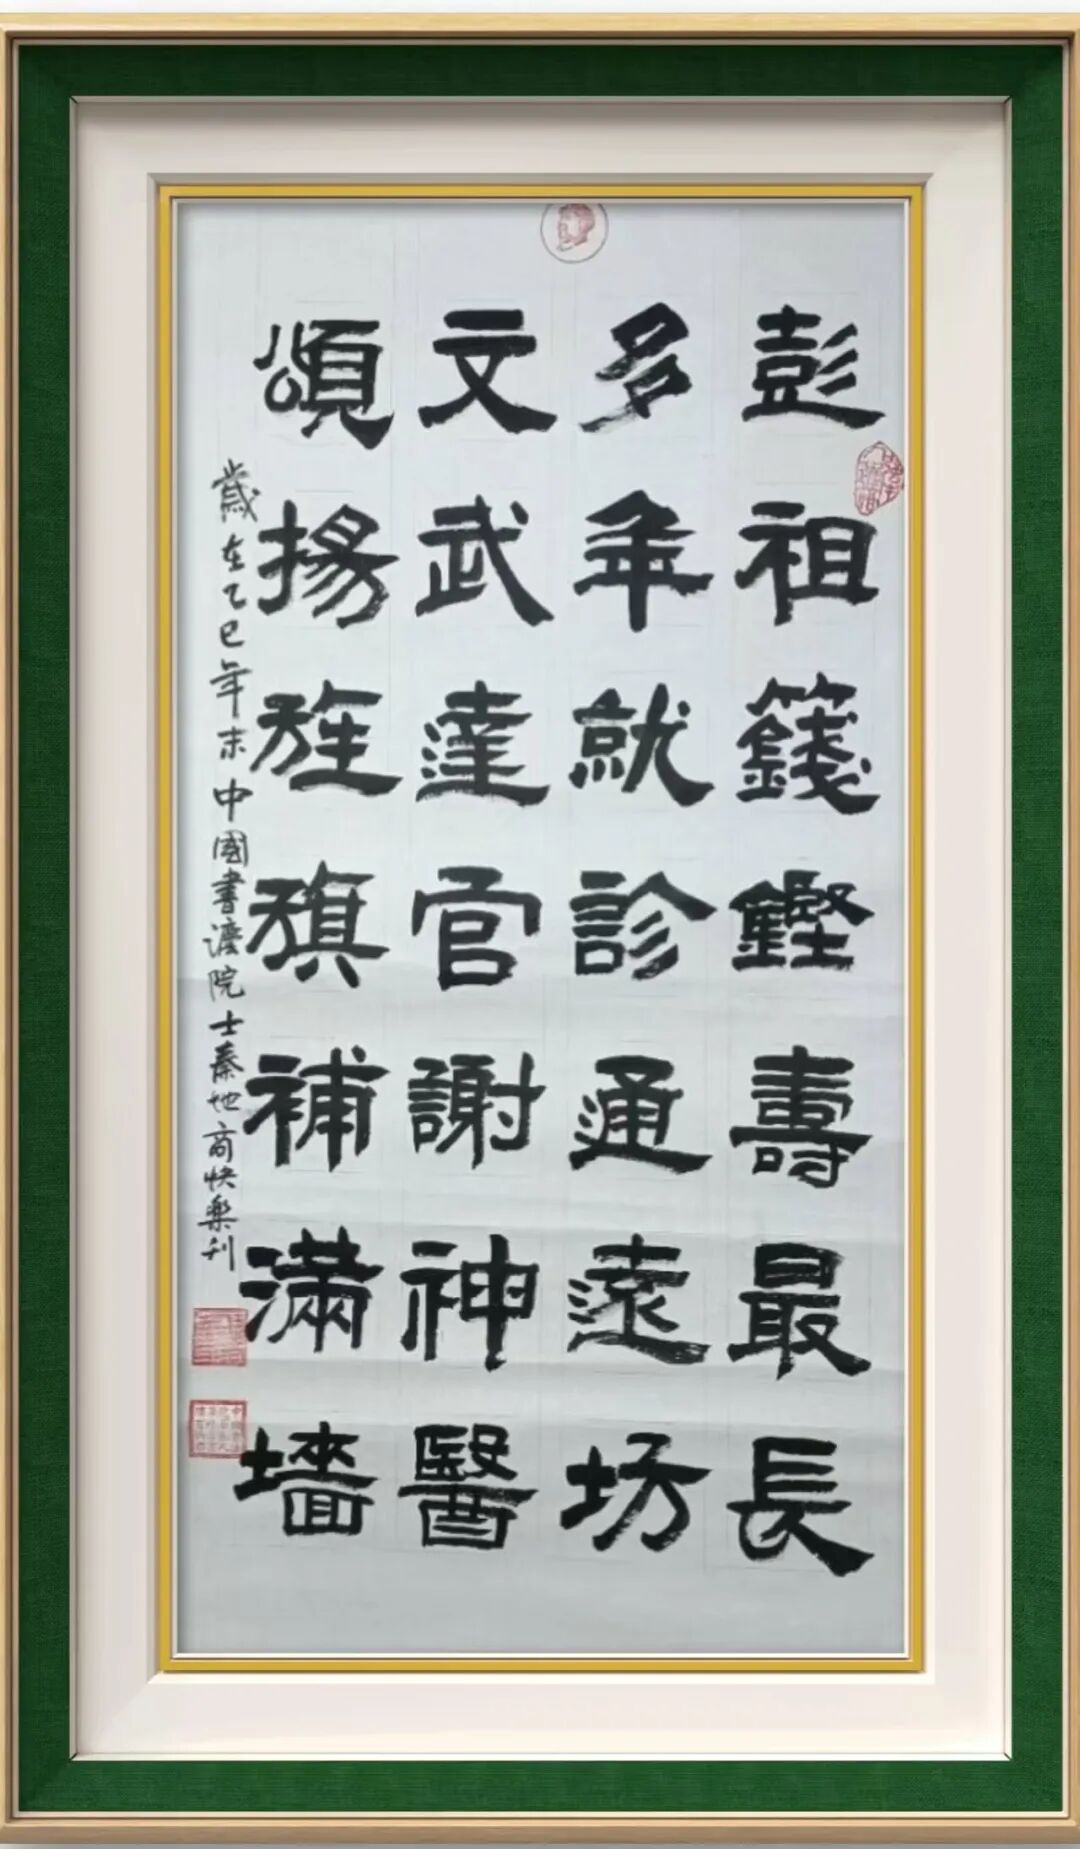 彭祖籛鏗壽最長
多年就診通遠坊
文武達官謝神醫
頌揚旌旗補滿墻
歲在乙巳年末中國書灋院士秦地商快樂刊